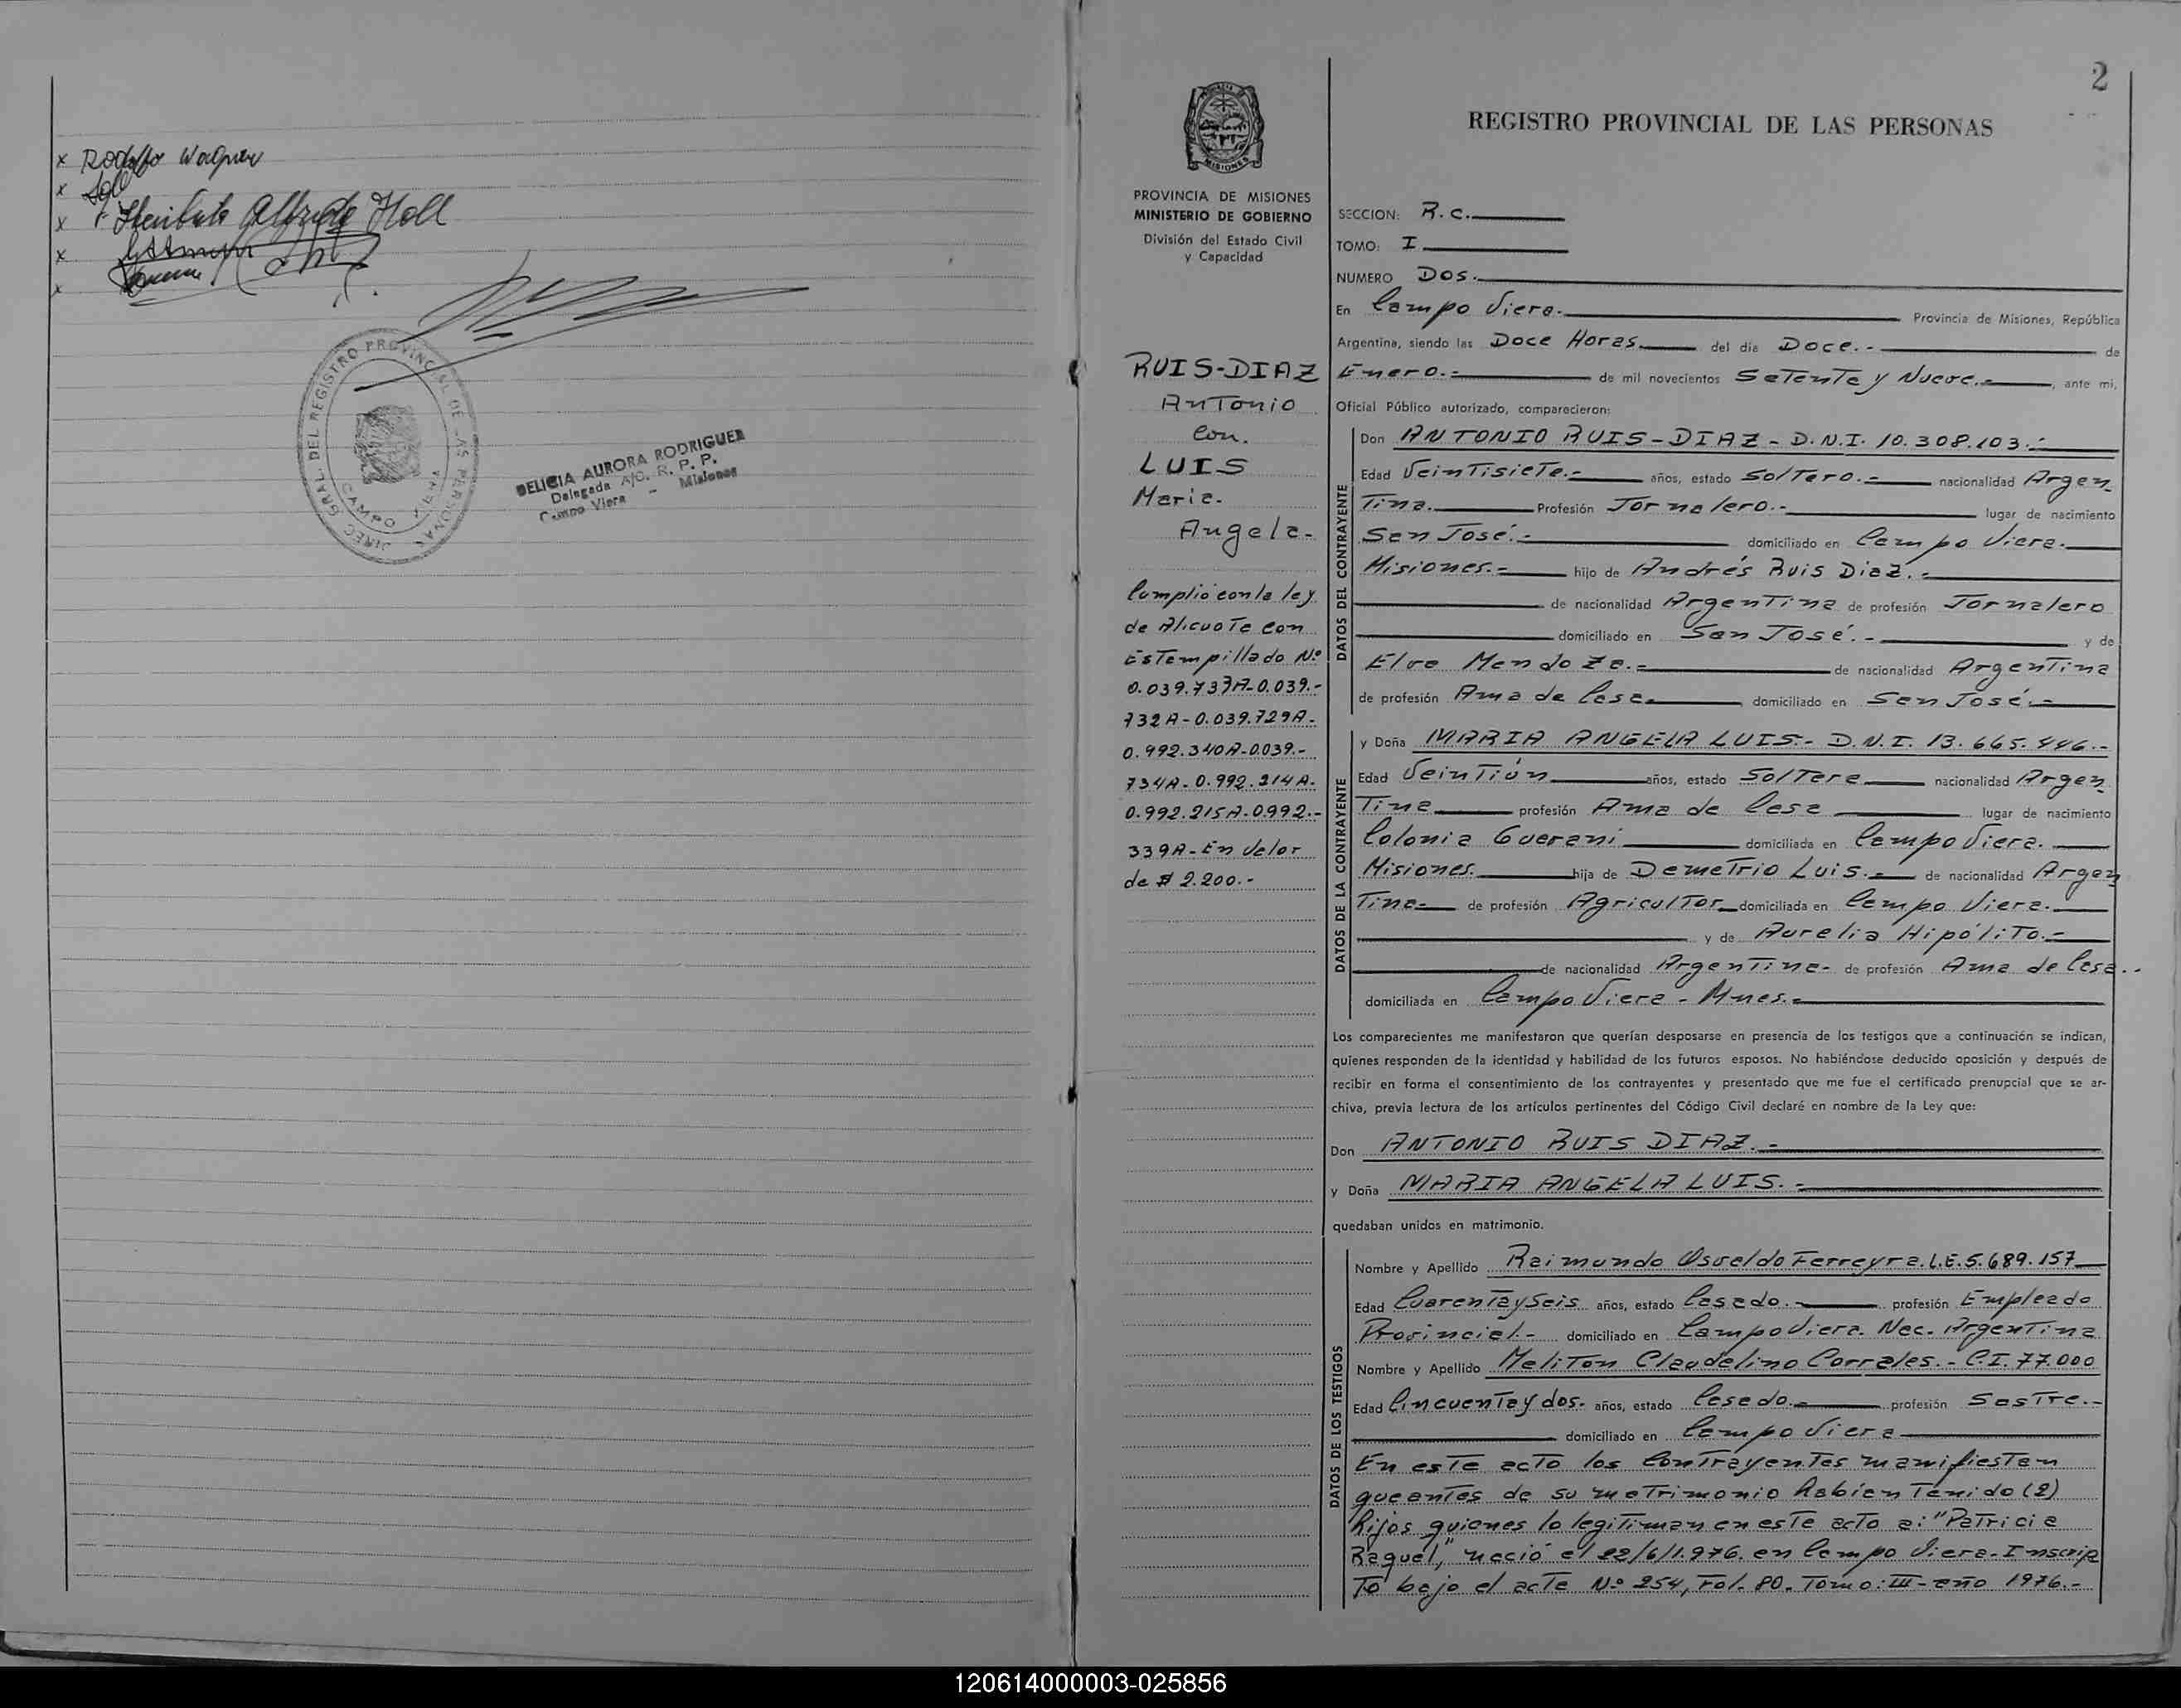 x Rodolfo Wagner
x
x Heriberto Alfredo Holl
x
x
DIREC. GRAL. DEL REGISTRO PROVINCIAL DE LAS PERSONAS
CAMPO VIERA
DELICIA AURORA RODRIGUEZ
Delegada A/C. R. P. P.
Campo Viera - Misiones
2
PROVINCIA DE MISIONES
MINISTERIO DE GOBIERNO
División del Estado Civil
y Capacidad
RUIS-DIAZ
Antonio
Con.
LUIS
Maria.
Angela-
Cumplió con la ley
de Alicuote con
Estampillado Nº
0.039.737A-0.039.-
732A-0.039.729A.
0.992.340A-0.039.-
734A-0.992.214A.
0.992.215A-0.992.-
339A-En Valor
de $ 2.200.-
REGISTRO PROVINCIAL DE LAS PERSONAS
SECCION: R.C.
TOMO: I
NUMERO Dos.
En Campo Viera. Provincia de Misiones, República
Argentina, siendo las Doce Horas. del día Doce.- de
Enero.- de mil novecientos Setenta y Nueve.-, ante mi,
Oficial Público autorizado, comparecieron:
DATOS DEL CONTRAYENTE
Don ANTONIO RUIS-DIAZ - D.N.I. 10.308.103.-
Edad Veintisiete.- años, estado Soltero.- nacionalidad Argen-
tina. Profesión Jornalero.- lugar de nacimiento
San José.- domiciliado en Campo Viera.
Misiones.- hijo de Andrés Ruis Diaz.-
de nacionalidad Argentina de profesión Jornalero
domiciliado en San José.- y de
Elva Mendoza.- de nacionalidad Argentina
de profesión Ama de Casa. domiciliado en San José.-
DATOS DE LA CONTRAYENTE
y Doña MARIA ANGELA LUIS.- D.N.I. 13.665.446.-
Edad Veintiún años, estado Soltera nacionalidad Argen-
tina profesión Ama de Casa lugar de nacimiento
Colonia Guarani domiciliada en Campo Viera.
Misiones. hija de Demetrio Luis.- de nacionalidad Argen
tina- de profesión Agricultor domiciliada en Campo Viera.
y de Aurelia Hipólito.-
de nacionalidad Argentina- de profesión Ama de Casa..
domiciliada en Campo Viera - Mnes.-
Los comparecientes me manifestaron que querían desposarse en presencia de los testigos que a continuación se indican,
quienes responden de la identidad y habilidad de los futuros esposos. No habiéndose deducido oposición y después de
recibir en forma el consentimiento de los contrayentes y presentado que me fue el certificado prenupcial que se ar-
chiva, previa lectura de los artículos pertinentes del Código Civil declaré en nombre de la Ley que:
Don ANTONIO RUIS DIAZ.-
y Doña MARIA ANGELA LUIS.-
quedaban unidos en matrimonio.
DATOS DE LOS TESTIGOS
Nombre y Apellido Raimundo Osvaldo Ferreyra. L.E. 5.689.157
Edad Cuarenta y Seis años, estado Casado.- profesión Empleado
Provincial.- domiciliado en Campo Viera. Nac. Argentina
Nombre y Apellido Meliton Claudelino Corrales.- C.I. 77.000
Edad Cincuenta y dos. años, estado Casado.- profesión Sastre.-
domiciliado en Campo Viera
En este acto los Contrayentes manifiestan
que antes de su matrimonio habian tenido (2)
hijos quienes lo legitiman en este acto a: "Patricia
Raquel," nació el 22/6/1.976. en Campo Viera-Inscrip
to bajo el acta Nº 254, Fol. 80. Tomo: III-año 1976.-
120614000003-025856